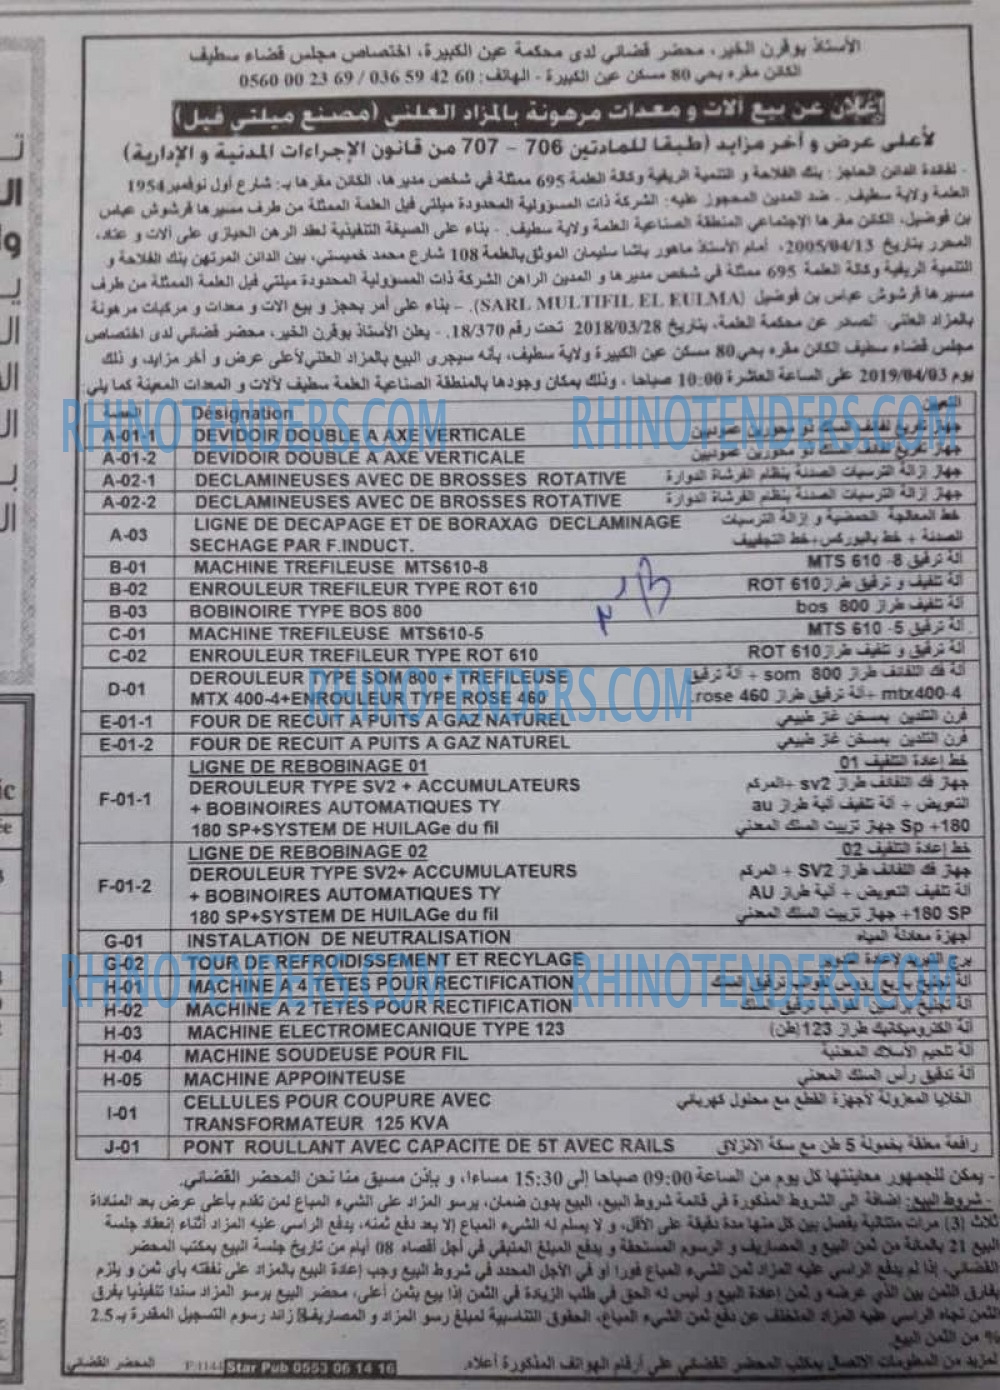 الأستاذ بوقرن الخير، محضر قضائي لدى محكمة عين الكبيرة، اختصاص مجلس قضاء سطيف
الكائن مقره بحي 80 مسكن عين الكبيرة - الهاتف: 60 42 59 036 / 69 23 00 0560
إعلان عن بيع آلات و معدات مرهونة بالمزاد العلني (مصنع ميلتي فيل)
لأعلى عرض و آخر مزايد (طبقا للمادتين 706 - 707 من قانون الإجراءات المدنية و الإدارية)
- لفائدة الدائن الحاجز: بنك الفلاحة و التنمية الريفية وكالة العلمة 695 ممثلة في شخص مديرها، الكائن مقرها بـ: شارع أول نوفمبر 1954
العلمة ولاية سطيف. - ضد المدين المحجوز عليه: الشركة ذات المسؤولية المحدودة ميلتي فيل العلمة الممثلة من طرف مسيرها فرشوش عباس
بن فوضيل، الكائن مقرها الإجتماعي المنطقة الصناعية العلمة ولاية سطيف. - بناء على الصيغة التنفيذية لعقد الرهن الحيازي على آلات و عتاد،
المحرر بتاريخ 2005/04/13، أمام الأستاذ ماهور باشا سليمان الموثق بالعلمة 108 شارع محمد خميستي، بين الدائن المرتهن بنك الفلاحة و
التنمية الريفية وكالة العلمة 695 ممثلة في شخص مديرها و المدين الراهن الشركة ذات المسؤولية المحدودة ميلتي فيل العلمة الممثلة من طرف
مسيرها فرشوش عباس بن فوضيل (SARL MULTIFIL EL EULMA). - بناء على أمر بحجز و بيع آلات و معدات و مركبات مرهونة
بالمزاد العلني، الصادر عن محكمة العلمة، بتاريخ 2018/03/28 تحت رقم 18/370. - يعلن الأستاذ بوقرن الخير، محضر قضائي لدى اختصاص
مجلس قضاء سطيف الكائن مقره بحي 80 مسكن عين الكبيرة ولاية سطيف، بأنه سيجرى البيع بالمزاد العلني لأعلى عرض و آخر مزايد، و ذلك
يوم 2019/04/03 على الساعة العاشرة 10:00 صباحا، وذلك بمكان وجودها بالمنطقة الصناعية العلمة سطيف لآلات و المعدات المعينة كما يلي:
الحصة Désignation التعيين
A-01-1 DEVIDOIR DOUBLE A AXE VERTICALE جهاز تفريغ لفائف السلك ذو محورين عموديين
A-01-2 DEVIDOIR DOUBLE A AXE VERTICALE جهاز تفريغ لفائف السلك ذو محورين عموديين
A-02-1 DECLAMINEUSES AVEC DE BROSSES ROTATIVE جهاز إزالة الترسبات الصدئة بنظام الفرشاة الدوارة
A-02-2 DECLAMINEUSES AVEC DE BROSSES ROTATIVE جهاز إزالة الترسبات الصدئة بنظام الفرشاة الدوارة
A-03 LIGNE DE DECAPAGE ET DE BORAXAG DECLAMINAGE خط المعالجة الحمضية و إزالة الترسبات
SECHAGE PAR F.INDUCT. الصدئة + خط بالبوركس+خط التجفيف
B-01 MACHINE TREFILEUSE MTS610-8 آلة ترقيق MTS 610 -8
B-02 ENROULEUR TREFILEUR TYPE ROT 610 آلة تلفيف و ترقيق طراز ROT 610
B-03 BOBINOIRE TYPE BOS 800 آلة تلفيف طراز bos 800
C-01 MACHINE TREFILEUSE MTS610-5 آلة ترقيق MTS 610 -5
C-02 ENROULEUR TREFILEUR TYPE ROT 610 آلة ترقيق و تلفيف طراز ROT 610
D-01 DEROULEUR TYPE SOM 800 + TREFILEUSE آلة فك اللفائف طراز som 800 + آلة ترقيق
MTX 400-4+ENROULEUR TYPE ROSE 460 mtx400-4 +آلة ترقيق طراز rose 460.
E-01-1 FOUR DE RECUIT A PUITS A GAZ NATUREL فرن التلدين بمسخن غاز طبيعي
E-01-2 FOUR DE RECUIT A PUITS A GAZ NATUREL فرن التلدين بمسخن غاز طبيعي
F-01-1 LIGNE DE REBOBINAGE 01 خط إعادة التلفيف 01
DEROULEUR TYPE SV2 + ACCUMULATEURS جهاز فك اللفائف طراز sv2 +المركم
+ BOBINOIRES AUTOMATIQUES TY التعويض + آلة تلفيف آلية طراز au
180 SP+SYSTEM DE HUILAGe du fil Sp +180 جهاز تزييت السلك المعدني
F-01-2 LIGNE DE REBOBINAGE 02 خط إعادة التلفيف 02
DEROULEUR TYPE SV2+ ACCUMULATEURS جهاز فك اللفائف طراز SV2 + المركم
+ BOBINOIRES AUTOMATIQUES TY آلة تلفيف التعويض + آلية طراز AU
180 SP+SYSTEM DE HUILAGe du fil 180 SP+ جهاز تزييت السلك المعدني
G-01 INSTALATION DE NEUTRALISATION أجهزة معادلة المياه
G-02 TOUR DE REFROIDISSEMENT ET RECYLAGE برج التبريد لإعادة التدوير
H-01 MACHINE A 4 TETES POUR RECTIFICATION آلة تجليخ بأربع رؤوس لقوالب ترقيق السلك
H-02 MACHINE A 2 TETES POUR RECTIFICATION آلة تجليخ برأسين لقوالب ترقيق السلك
H-03 MACHINE ELECTROMECANIQUE TYPE 123 آلة الكتروميكانيك طراز 123(طن)
H-04 MACHINE SOUDEUSE POUR FIL آلة تلحيم الأسلاك المعدنية
H-05 MACHINE APPOINTEUSE آلة تدقيق رأس السلك المعدني
I-01 CELLULES POUR COUPURE AVEC الخلايا المعزولة لأجهزة القطع مع محلول كهربائي
TRANSFORMATEUR 125 KVA
J-01 PONT ROULLANT AVEC CAPACITE DE 5T AVEC RAILS رافعة معلقة بحمولة 5 طن مع سكة الانزلاق
- يمكن للجمهور معاينتها كل يوم من الساعة 09:00 صباحا إلى 15:30 مساءا، و بإذن مسبق منا نحن المحضر القضائي.
- شروط البيع: إضافة الى الشروط المذكورة في قائمة شروط البيع، البيع بدون ضمان، يرسو المزاد على الشيء المباع لمن تقدم بأعلى عرض بعد المناداة
ثلاث (3) مرات متتالية يفصل بين كل منها مدة دقيقة على الأقل، و لا يسلم له الشيء المباع إلا بعد دفع ثمنه، يدفع الراسي عليه المزاد أثناء إنعقاد جلسة
البيع 21 بالمائة من ثمن البيع و المصاريف و الرسوم المستحقة و يدفع المبلغ المتبقي في أجل أقصاه 08 أيام من تاريخ جلسة البيع بمكتب المحضر
القضائي، إذا لم يدفع الراسي عليه المزاد ثمن الشيء المباع فورا أو في الأجل المحدد في شروط البيع وجب إعادة البيع بالمزاد على نفقته بأي ثمن و يلزم
بفارق الثمن بين الذي عرضه و ثمن إعادة البيع و ليس له الحق في طلب الزيادة في الثمن إذا بيع بثمن أعلى، محضر البيع يرسو المزاد سندا تنفيذيا بفرق
الثمن تجاه الراسي عليه المزاد المتخلف عن دفع ثمن الشيء المباع، الحقوق التناسبية لمبلغ رسو المزاد و المصاريف زائد رسوم التسجيل المقدرة بـ 2.5
% من ثمن البيع.
لمزيد من المعلومات الاتصال بمكتب المحضر القضائي على أرقام الهواتف المذكورة أعلاه.
Star Pub 0553 06 14 16 المحضر القضائي
RHINOTENDERS.COM
RHINOTENDERS.COM
RHINOTENDERS.COM
RHINOTENDERS.COM
RHINOTENDERS.COM